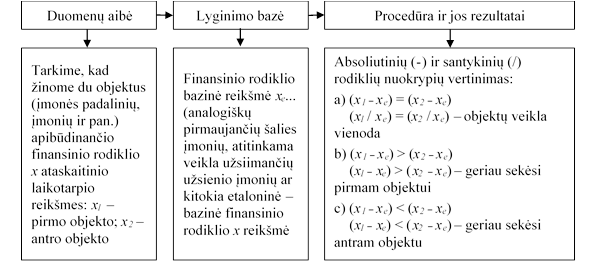 Duomenų aibė
Lyginimo bazė
Procedūra ir jos rezultatai
Tarkime, kad
žinome du objektus
(įmonės padalinių,
įmonių ir pan.)
apibūdinančio
finansinio rodiklio
x ataskaitinio
laikotarpio
reikšmes: x1 –
pirmo objekto; x2 –
antro objekto
Finansinio rodiklio
bazinė reikšmė xe...
(analogiškų
pirmaujančių šalies
įmonių, atitinkama
veikla užsiimančių
užsienio įmonių ar
kitokia etaloninė –
bazinė finansinio
rodiklio x reikšmė
Absoliutinių (-) ir santykinių (/)
rodiklių nuokrypių vertinimas:
a) (x1 – xe) = (x2 – xe)
(x1 / xe) = (x2 / xe) – objektų veikla
vienoda
b) (x1 – xe) > (x2 – xe)
(x1 – xe) > (x2 – xe) – geriau sekėsi
pirmam objektui
c) (x1 – xe) < (x2 – xe)
(x1 – xe) < (x2 – xe) – geriau sekėsi
antram objektu